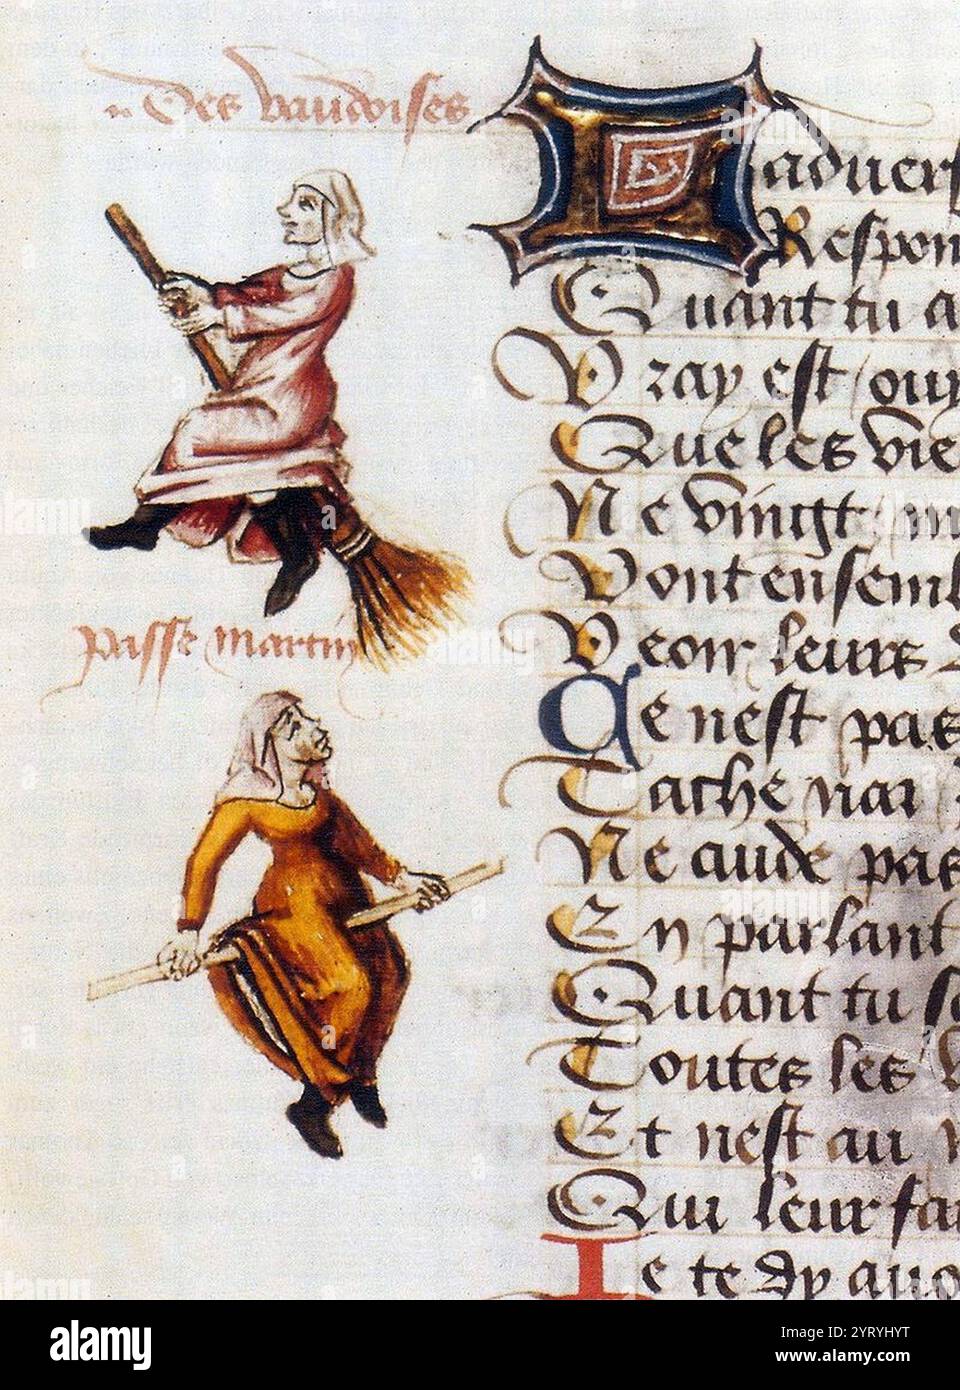 Des vaudoises
passe martin
L adverſ
Reſpon
Quant tu a
Vray eſt ouy
Que les vie
Ne vingt m
Vont enſemb
Veoir leurs
Ce neſt pas
Tache nai
Ne aude pas
En parlant
Quant tu ſ
Toutes les v
Et neſt au
Qui leur fai
Ie te dy auo
alamy
Image ID: 2YRYHYT
www.alamy.com